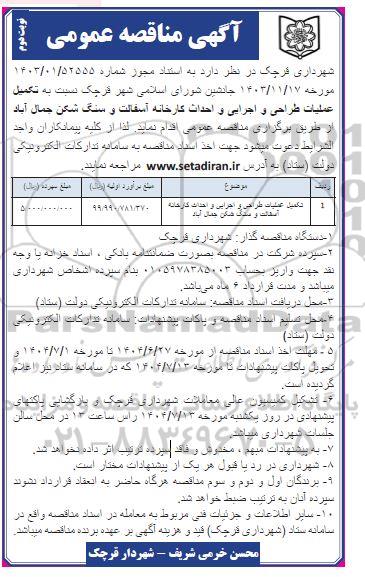 آگهی مناقصه عمومی
نوبت دوم
شهرداری قرچک در نظر دارد به استناد مجوز شماره ۱۴۰۳/۰۱/۵۲۵۵۵
مورخه ۱۴۰۳/۱۱/۱۷ جانشین شورای اسلامی شهر قرچک نسبت به تکمیل
عملیات طراحی و اجرایی و احداث کارخانه آسفالت و سنگ شکن جمال آباد
از طریق برگزاری مناقصه عمومی اقدام نماید. لذا از کلیه پیمانکاران واجد
الشرایط دعوت میشود جهت اخذ اسناد مناقصه به سامانه تدارکات الکترونیکی
دولت (ستاد) به آدرس www.setadiran.ir مراجعه نمایند.
ردیف موضوع مبلغ برآورد اولیه (ریال) مبلغ سپرده (ریال)
1 تکمیل عملیات طراحی و اجرایی و احداث کارخانه آسفالت و سنگ شکن جمال آباد ۹۹/۹۹۰/۷۸۱/۳۷۰ ۵/۰۰۰/۰۰۰/۰۰۰
۱-دستگاه مناقصه گذار: شهرداری قرچک
۲-سپرده شرکت در مناقصه بصورت ضمانتنامه بانکی ، اسناد خزانه یا وجه
نقد جهت واریز بحساب ۰۱۰۵۹۷۸۳۸۵۰۰۳ بنام سپرده اشخاص شهرداری
میباشد و مدت قرارداد ۶ ماه می‌باشد.
۳-محل دریافت اسناد مناقصه: سامانه تدارکات الکترونیکی دولت (ستاد)
۴-محل تسلیم اسناد مناقصه و پاکات پیشنهادات: سامانه تدارکات الکترونیکی
دولت (ستاد)
۵ - مهلت اخذ اسناد مناقصه از مورخه ۱۴۰۴/۶/۲۷ تا مورخه ۱۴۰۴/۷/۱ و
تحویل پاکات پیشنهادات تا مورخه ۱۴۰۴/۷/۱۳ که در سامانه ستاد نیز اعلام
گردیده است.
۶- تشکیل کمیسیون عالی معاملات شهرداری قرچک و بازگشایی پاکتهای
پیشنهادی در روز یکشنبه مورخه ۱۴۰۴/۷/۱۳ راس ساعت ۱۳ در محل سالن
جلسات شهرداری میباشد.
۷- به پیشنهادات مبهم ، مخدوش و فاقد سپرده ترتیب اثر داده نخواهد شد.
۸- شهرداری در رد یا قبول هر یک از پیشنهادات مختار است.
۹- برندگان اول و دوم و سوم مناقصه هرگاه حاضر به انعقاد قرارداد نشوند
سپرده آنان به ترتیب ضبط خواهد شد.
۱۰- سایر اطلاعات و جزئیات فنی مربوط به معامله در اسناد مناقصه واقع در
سامانه ستاد (شهرداری قرچک) قید و هزینه آگهی بر عهده برنده مناقصه میباشد.
محسن خرمی شریف – شهردار قرچک